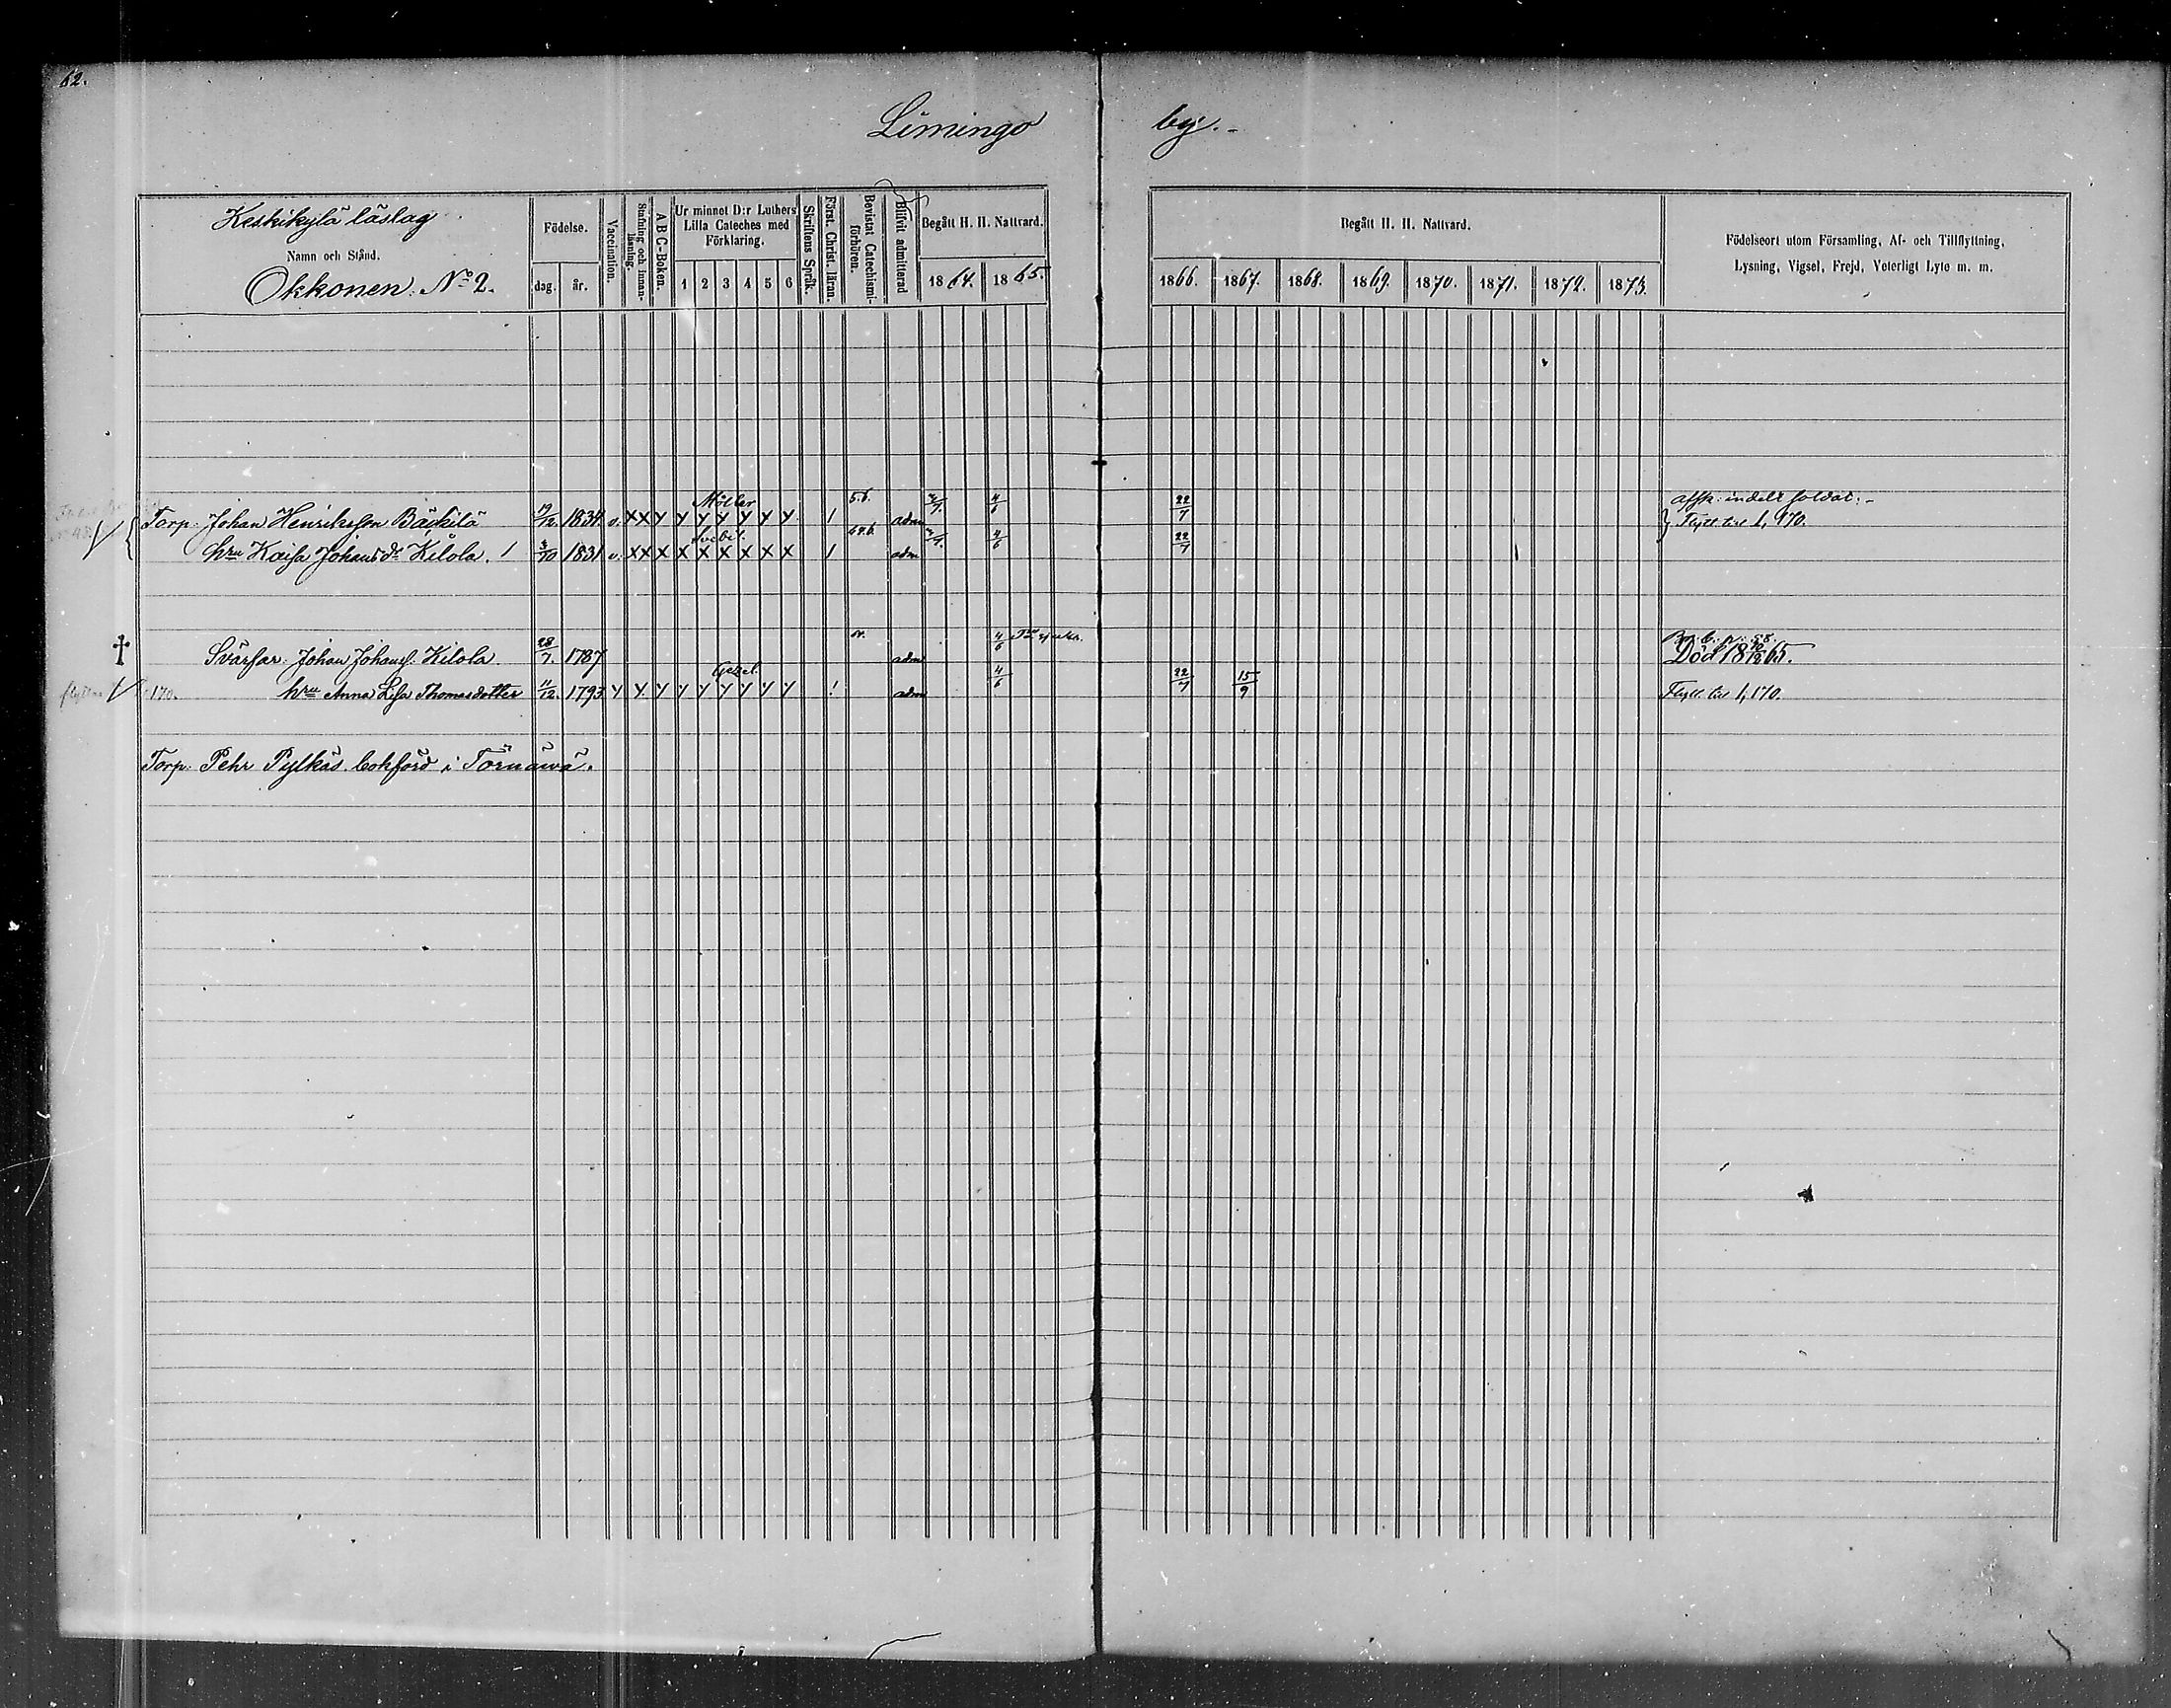 62.
Limingo by.
Keskikylä läslag
Namn och Stånd.
Okkonen. No 2.
Födelse.
dag. år.
Vaccination.
Stafning och innanläsning.
A B C-Boken.
Ur minnet D:r Luthers Lilla Cateches med Förklaring.
1 2 3 4 5 6
Skriftens Språk.
Först. Christ. läran.
Bevistat Catechismiförhören.
Blifvit admitterad
Begått H. H. Nattvard.
1864. 1865.
Begått H. H. Nattvard.
1866. 1867. 1868. 1869. 1870. 1871. 1872. 1873.
Födelseort utom Församling, Af- och Tillflyttning,
Lysning, Vigsel, Frejd, Veterligt Lyte m. m.
Möller 5.6. afsk. indelt soldat.
Torp. Johan Henriksson Bäckilä 19/12 1834 v. X X Y Y Y Y Y Y Y 1 adm 22/7 Flytt till 1,170.
Svebel.
hru Kaisa Johansdr Kilola. 3/10 1831 v. X X X X X X X X X 1 adm 4/6 22/7
Svärfar Johan Johanss. Kilola 28/7. 1787 adm 4/6 Död 18 65.
Gezel.
170. hru Anna Lisa Thomasdotter 11/12 1793 Y Y Y Y Y Y Y Y Y ! adm 4/6 22/7 15/9 Flytt till 1,170.
Torp. Pehr Pylkäs bokförd i Törnävä.